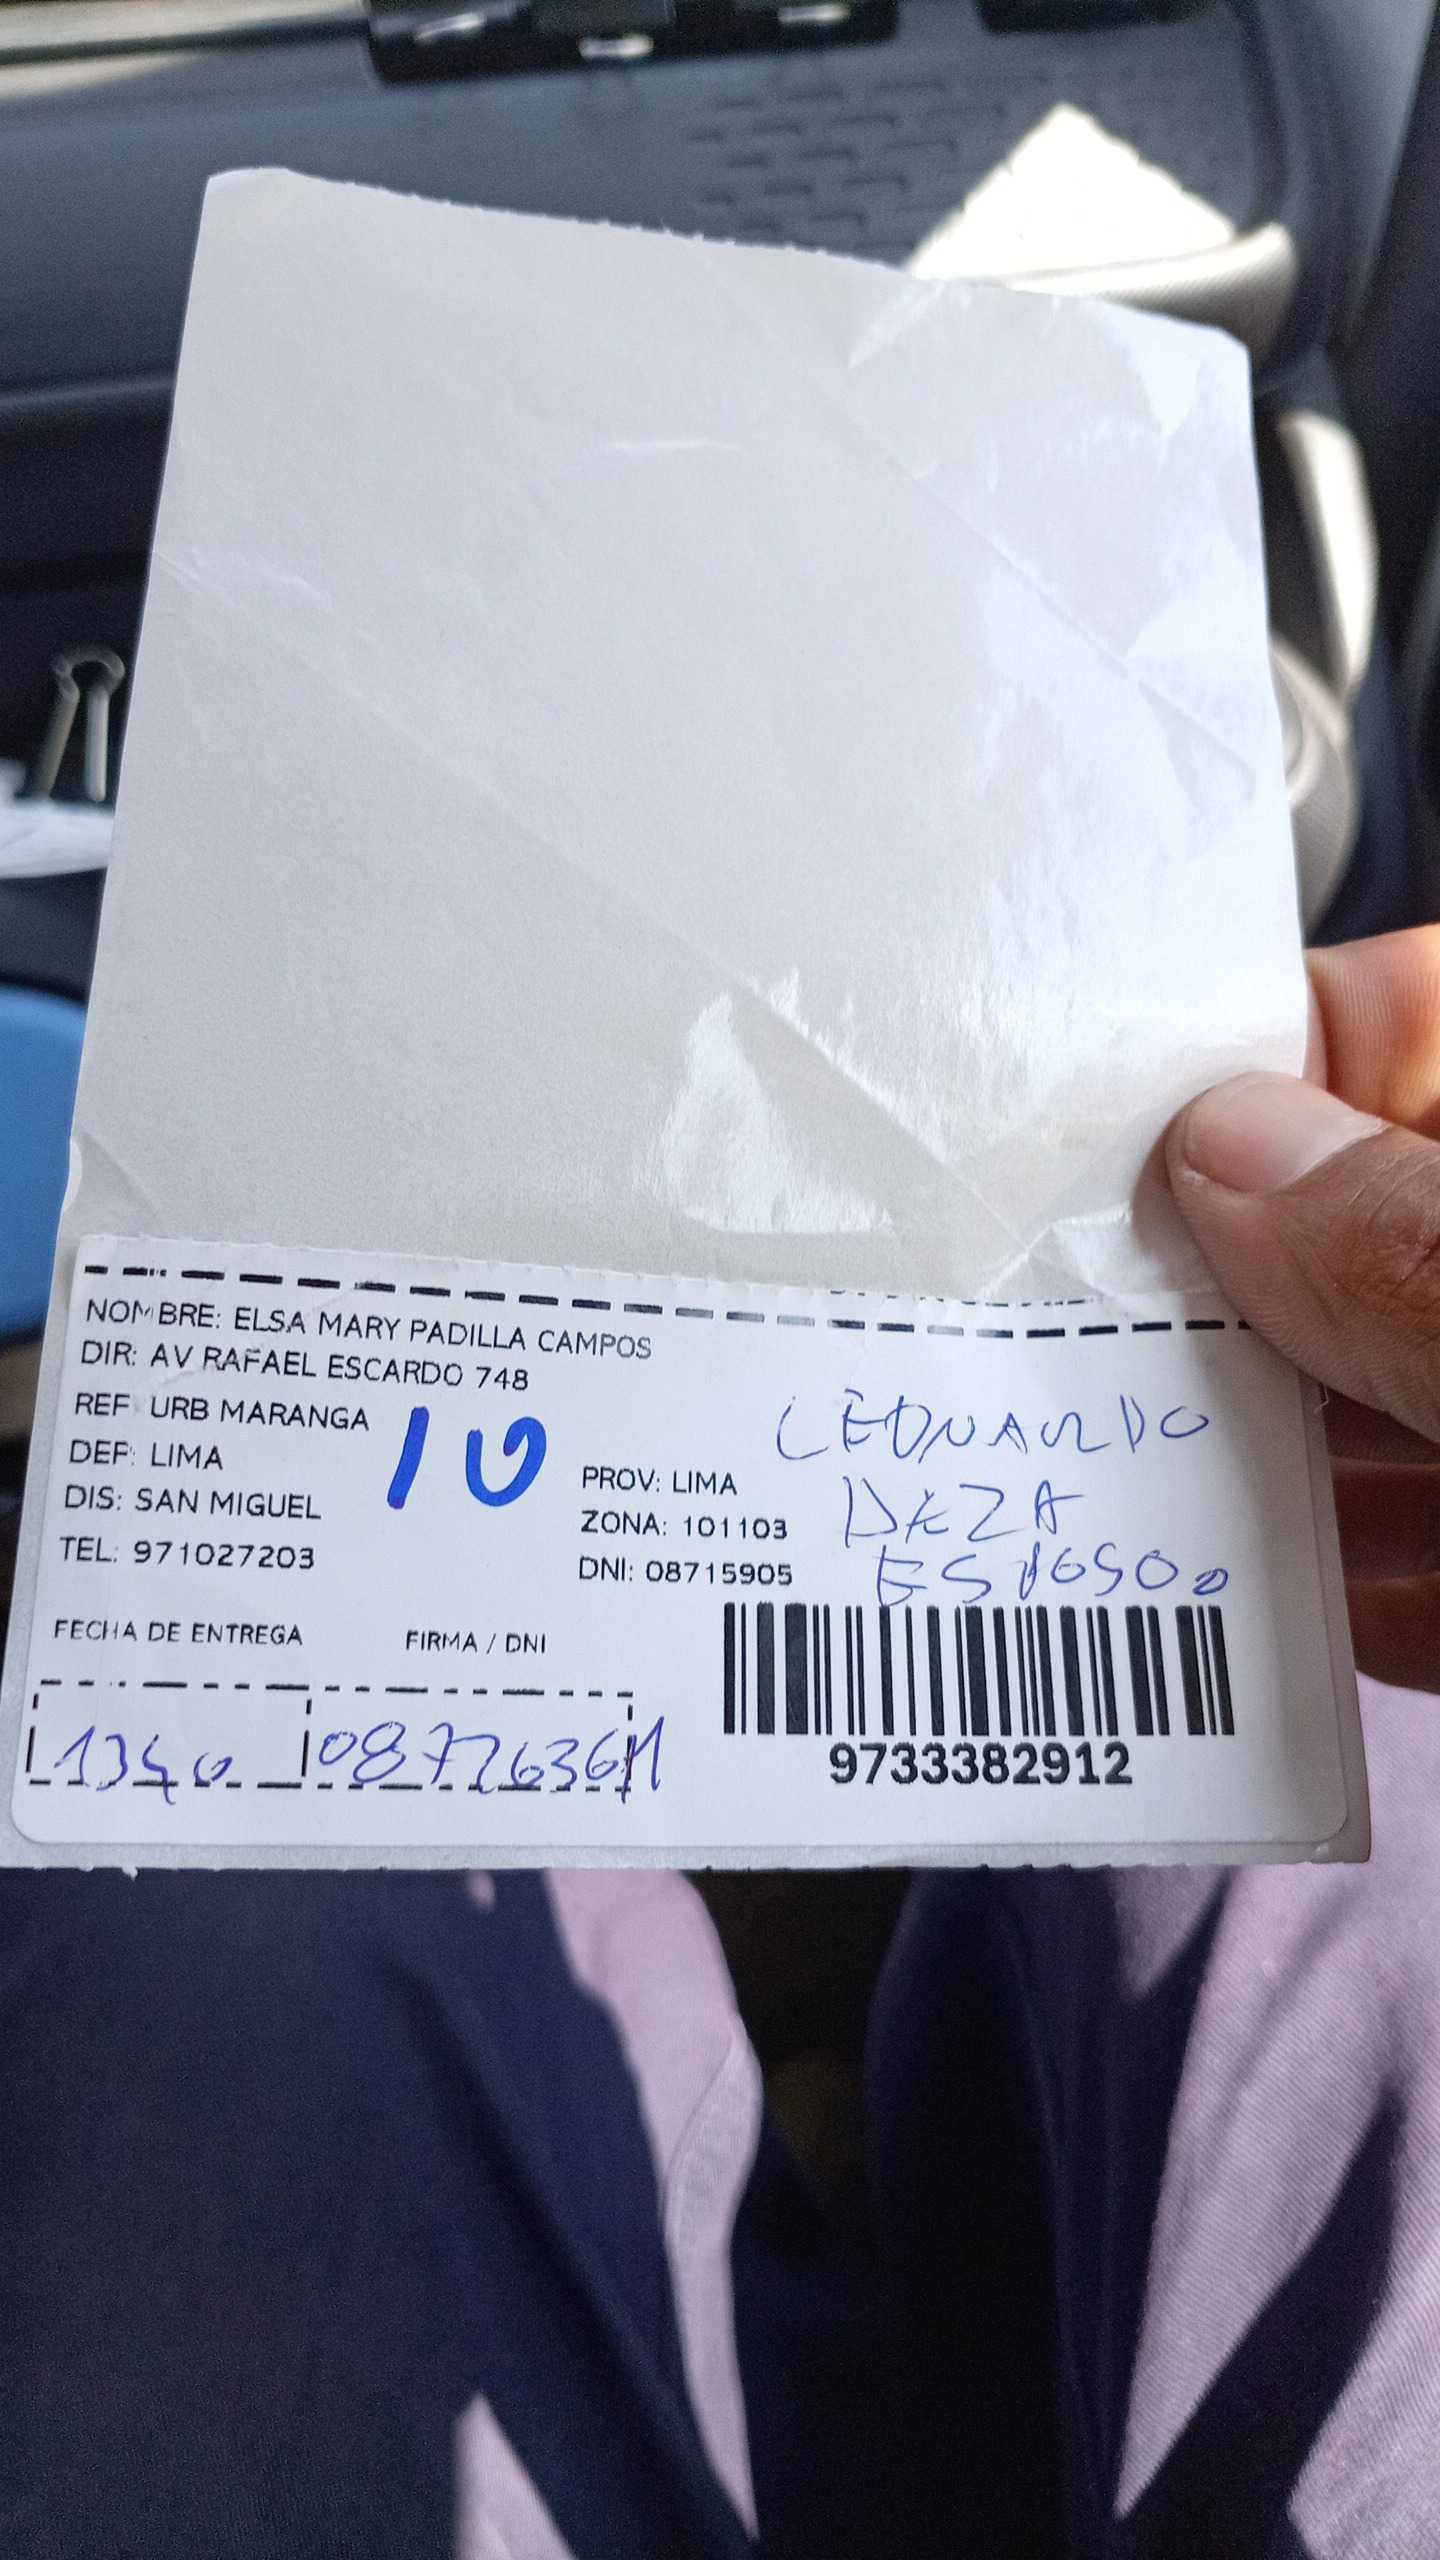 NOMBRE: ELSA MARY PADILLA CAMPOS
DIR: AV RAFAEL ESCARDO 748
REF: URB MARANGA
DEP: LIMA
DIS: SAN MIGUEL
TEL: 971027203
10
PROV: LIMA
ZONA: 101103
DNI: 08715905
LEONARDO
DEZA
ESPOSO
FECHA DE ENTREGA
FIRMA / DNI
1340
08726361
9733382912